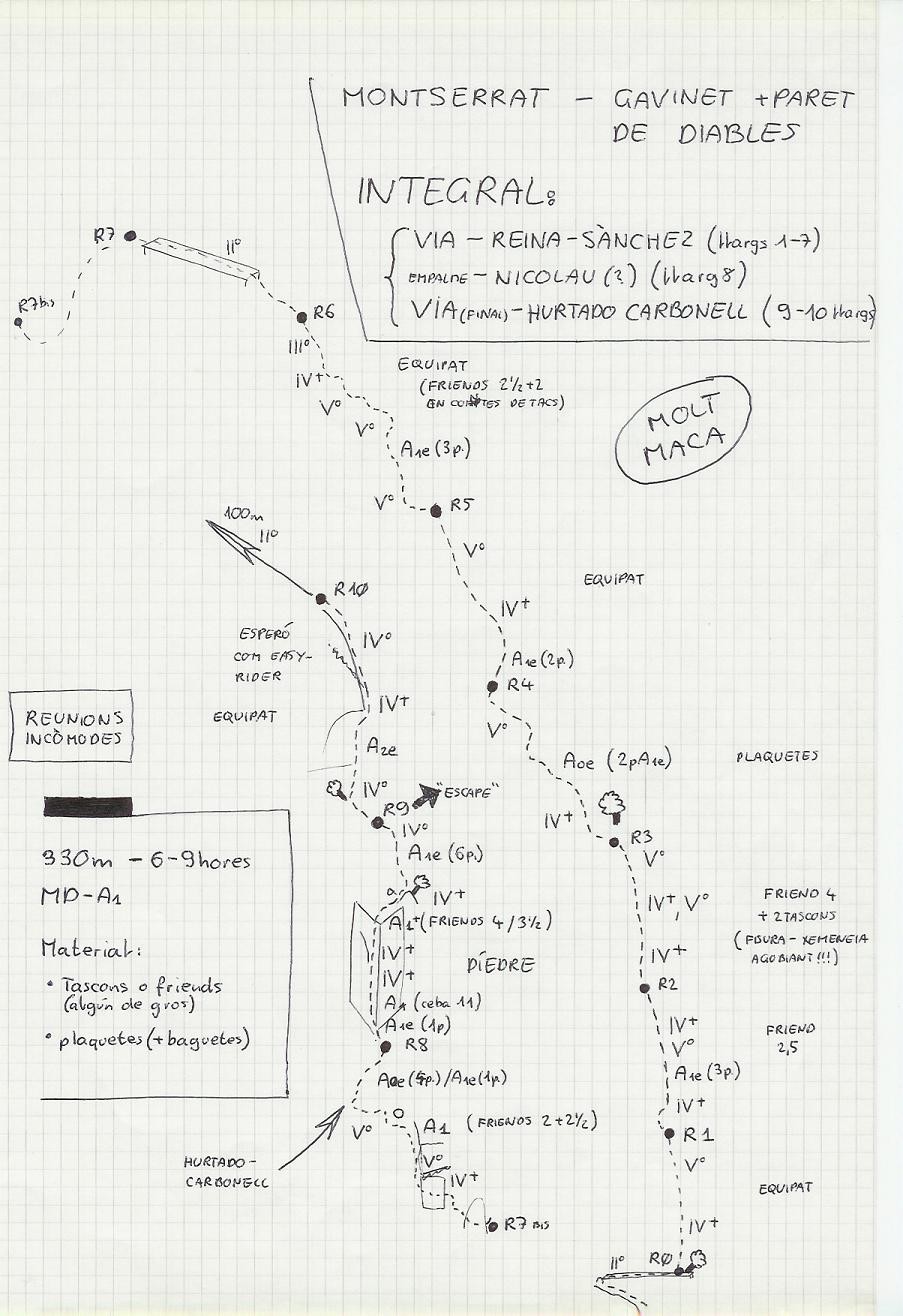 MONTSERRAT - GAVINET + PARET
DE DIABLES
INTEGRAL:
VIA - REINA-SÀNCHEZ (llargs 1-7)
EMPALME - NICOLAU (?) (llarg 8)
VIA (FINAL) - HURTADO CARBONELL (9-10 llargs)
R7
II°
R7 bis
R6
III°
IV+
V°
V°
EQUIPAT
(FRIENDS 2 1/2 + 2
EN COMPTES DE TACS)
MOLT
MACA
A1e (3p.)
V°
R5
V°
EQUIPAT
IV+
A1e (2p.)
R4
V°
A0e (2pA1e)
PLAQUETES
IV+
R3
V°
IV+, V°
FRIEND 4
+ 2 TASCONS
(FISURA-XEMENEIA
AGOBIANT!!!)
IV+
R2
IV+
V°
FRIEND
2,5
A1e (3p.)
IV+
R1
V°
EQUIPAT
IV+
R0
II°
100m
II°
R10
IV°
ESPERÓ
COM EASY-
RIDER
EQUIPAT
IV+
A2e
IV°
R9
"ESCAPE"
IV°
A1e (6p.)
a
IV+
A1+ (FRIENDS 4/3 1/2)
IV+
IV+
DÍEDRE
A1 (ceba 11)
A1e (1p)
R8
A0e (5p.)/A1e (1p.)
V°
A1 (FRIENDS 2+2 1/2)
V°
IV+
R7 BIS
HURTADO-
CARBONELL
REUNIONS
INCÒMODES
330m - 6-9 hores
MD-A1
Material:
• Tascons o friends
(algún de gros)
• plaquetes (+ baguetes)